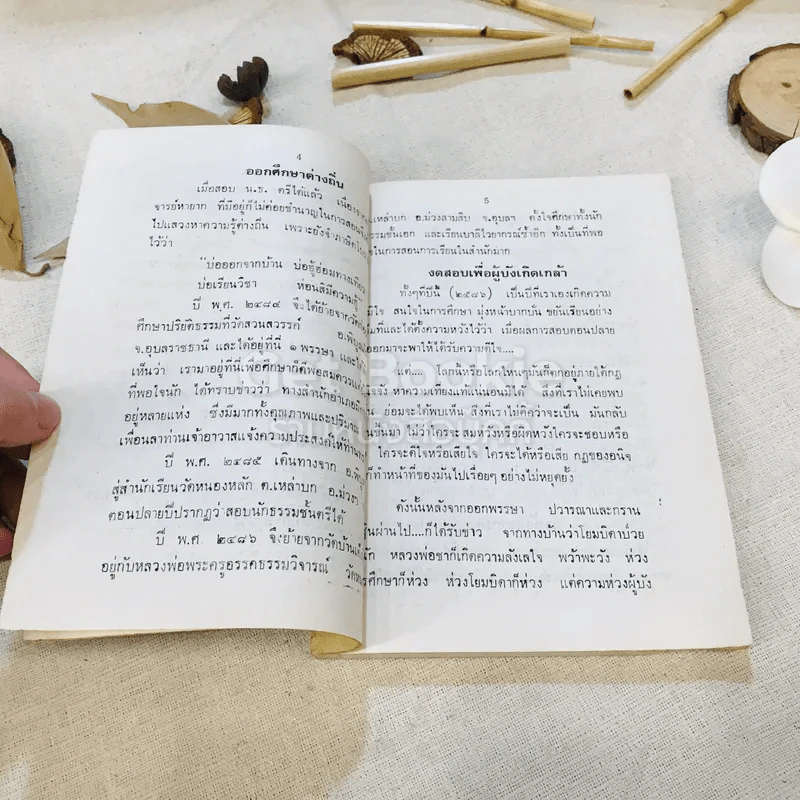 4
ออกศึกษาต่างถิ่น
เมื่อสอบ น.ธ. ตรีได้แล้ว
จารย์หายาก ที่มีอยู่ก็ไม่ค่อยชำนาญในการสอน
ไปแสวงหาความรู้ต่างถิ่น เพราะยังจำภาษิตโบ
ไว้ว่า
"บ่ออกจากบ้าน บ่อฮู้ฮ่อมทางเที่ยว
บ่อเรียนวิชา ห่อนสิมีความฮู้"
ปี พ.ศ. ๒๔๘๔ จึงได้ย้ายจากวัด
ศึกษาปริยัติธรรมที่วัดสวนสวรรค์ อ.พิบูล
จ.อุบลราชธานี และได้อยู่ที่นี่ ๑ พรรษา และได้
เห็นว่า เรามาอยู่ที่นี่เพื่อศึกษาก็ดีพอสมควร
ที่พอใจนัก ได้ทราบข่าวว่า ทางสำนักอำเภอ
อยู่หลายแห่ง ซึ่งมีมากทั้งคุณภาพและปริมาณ
เพื่อนลาท่านเจ้าอาวาสแจ้งความประสงค์ให้ท่าน
ปี พ.ศ. ๒๔๘๕ เดินทางจาก อ.พิบู
สู่สำนักเรียนวัดหนองหลัก ต.เหล่าบก อ.ม่วง
ตอนปลายปีปรากฏว่าสอบนักธรรมชั้นตรีได้
ปี พ.ศ ๒๔๘๖ จึงย้ายจากวัดบ้าน
อยู่กับหลวงพ่อพระครูอรรคธรรมวิจารณ์ วัด
5
เหล่าบก อ.ม่วงสามสิบ จ.อุบลา ตั้งใจศึกษาทั้งนัก
ธรรมชั้นเอก และเรียนบาลีไวยากรณ์ซ้ำอีก ทั้งเป็นที่พอ
ใจในการสอนการเรียนในสำนักมาก
งดสอบเพื่อผู้บังเกิดเกล้า
ทั้งๆที่ปีนี้ (๒๕๘๖) เป็นปีที่เราเองเกิดความ
มีใจ สนใจในการศึกษา มุ่งหน้าบากบั่น ขยันเรียนอย่าง
มที่และได้ตั้งความหวังไว้ว่า เมื่อผลการสอบตอนปลาย
ออกมาจะพาให้ได้รับความดีใจ....
แต่.... โลกนี้หรือโลกไหนๆมันก็ตกอยู่ภายใต้กฎ
จัง หาความเที่ยงแท้แน่นอนมิได้ สิ่งที่เราไม่เคยพบ
น ย่อมจะได้พบเห็น สิ่งที่เราไม่คิดว่าจะเป็น มันกลับ
นขึ้นมา ไม่ว่าใครจะสมหวังหรือผิดหวังใครจะชอบหรือ
ใครจะดีใจหรือเสียใจ ใครจะได้หรือเสีย กฎของอนิจ
ก็ทำหน้าที่ของมันไปเรื่อยๆ อย่างไม่หยุดยั้ง
ดังนั้นหลังจากออกพรรษา ปวารณาและกราน
นผ่านไป....ก็ได้รับข่าว จากทางบ้านว่าโยมบิดาป่วย
ัก หลวงพ่อชาก็เกิดความลังเลใจ พว้าพะวัง ห่วง
รศึกษาก็ห่วง ห่วงโยมบิดาก็ห่วง แต่ความห่วงผู้บัง
Get Bookie